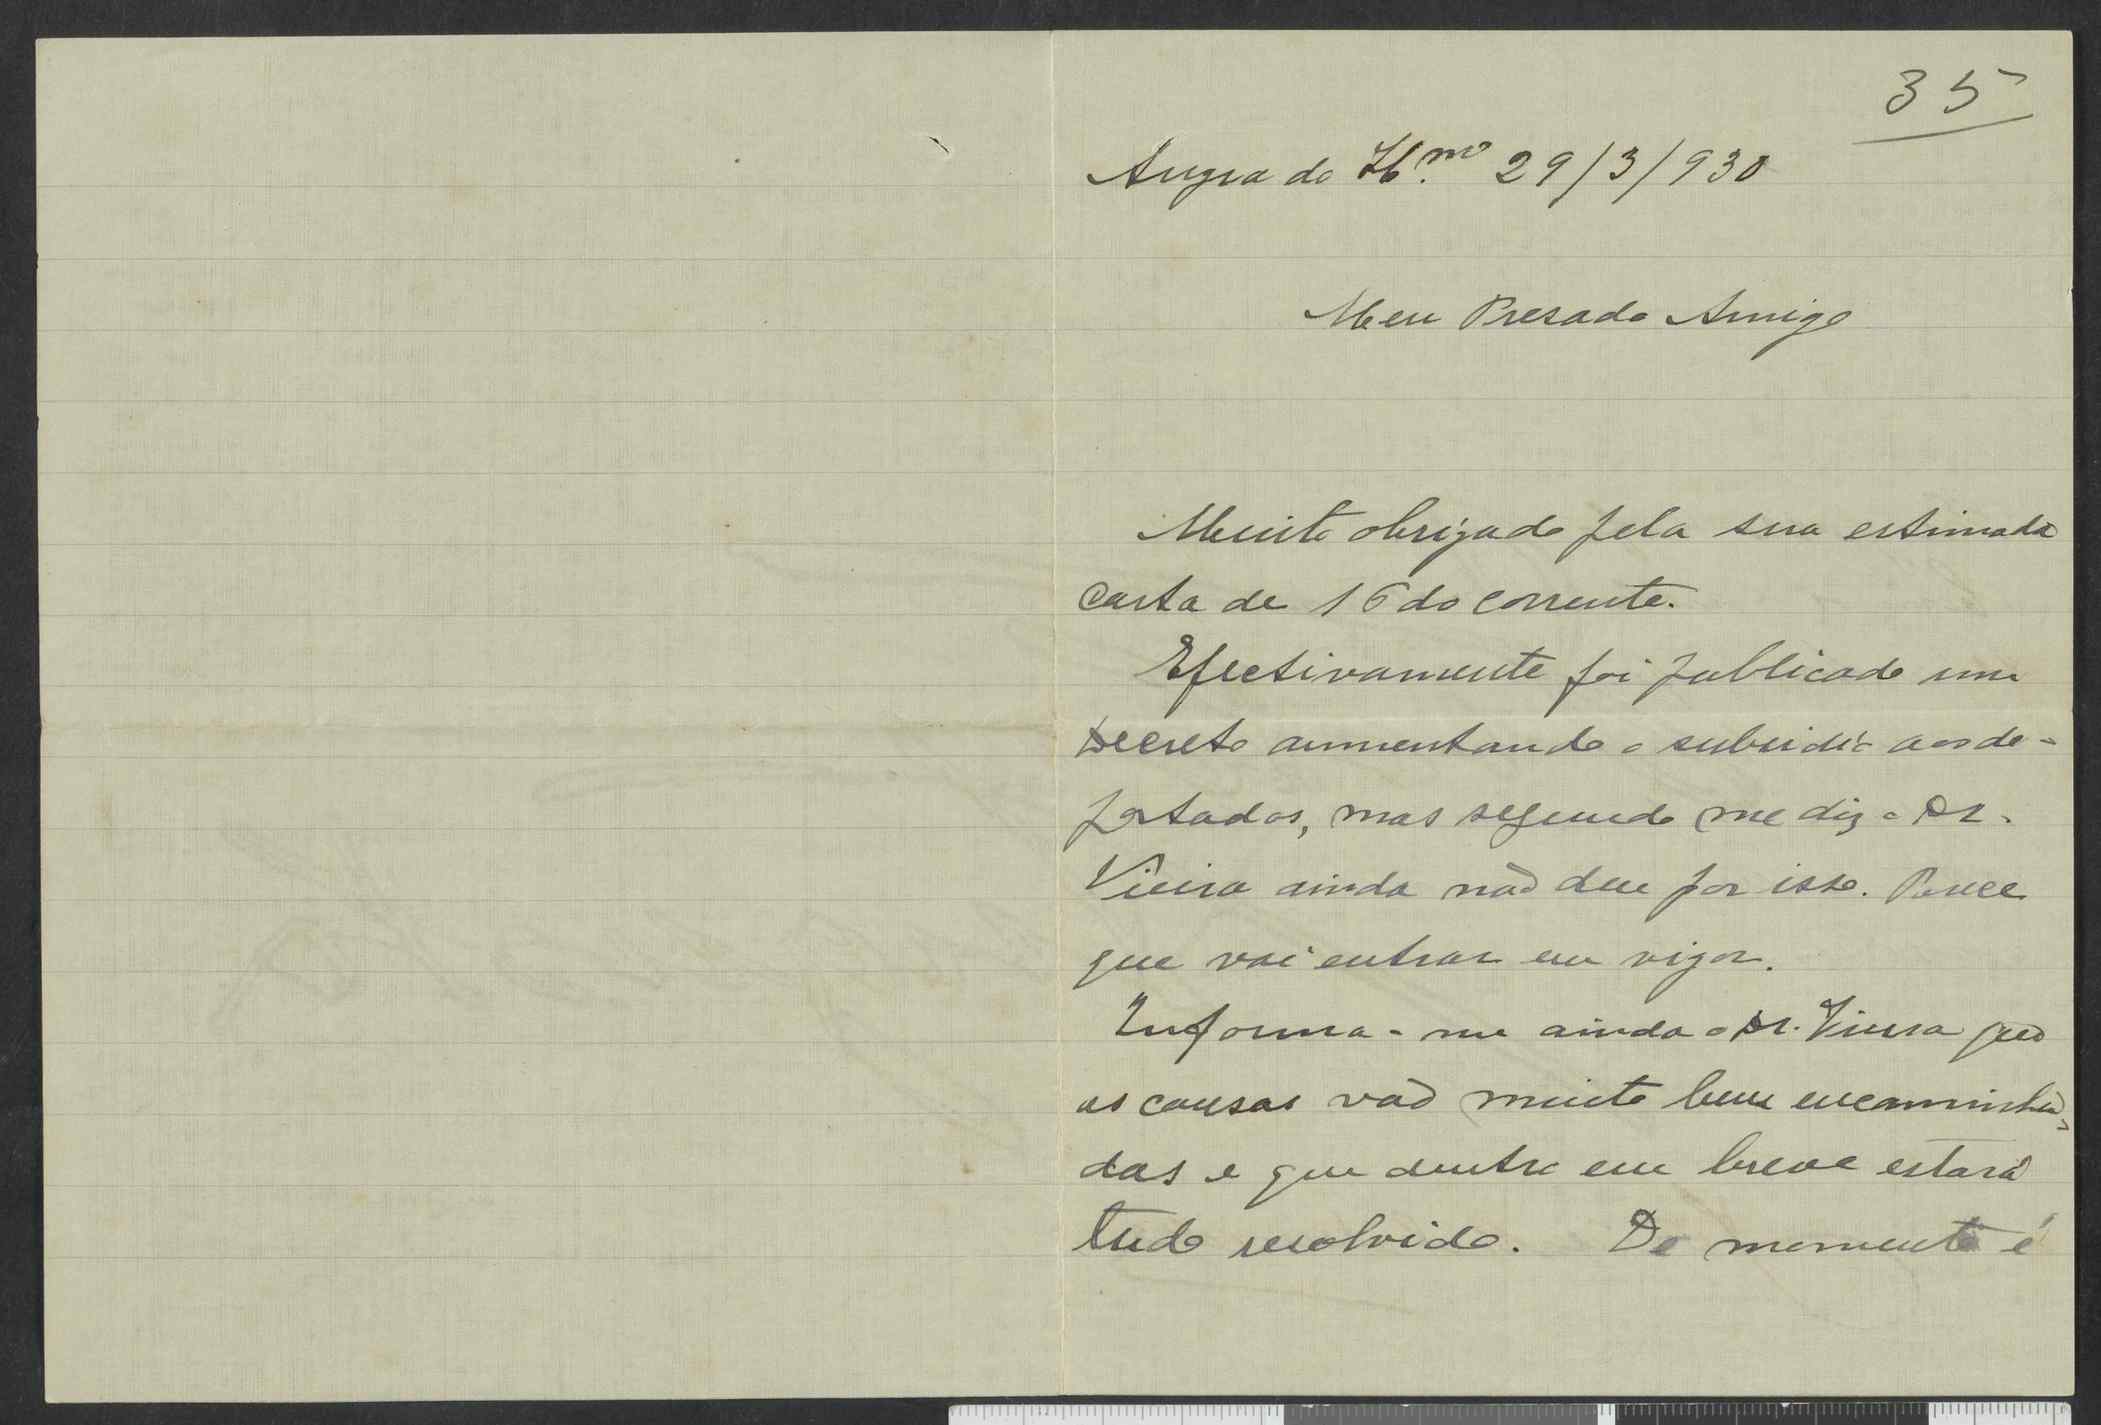 35
Angra do H.mo 29/3/930
Meu Presado Amigo
Muito obrigado pela sua estimada
carta de 16 do corrente.
Efectivamente foi publicado um
Decreto aumentando o subsidio aos de-
portados, mas segundo me diz o Dr.
Vieira ainda não deu por isso. Parece
que vai entrar em vigor.
Informa-me ainda o Dr. Vieira que
as cousas vão muito bem encaminha-
das e que dentro em breve estará
tudo resolvido. De momento é